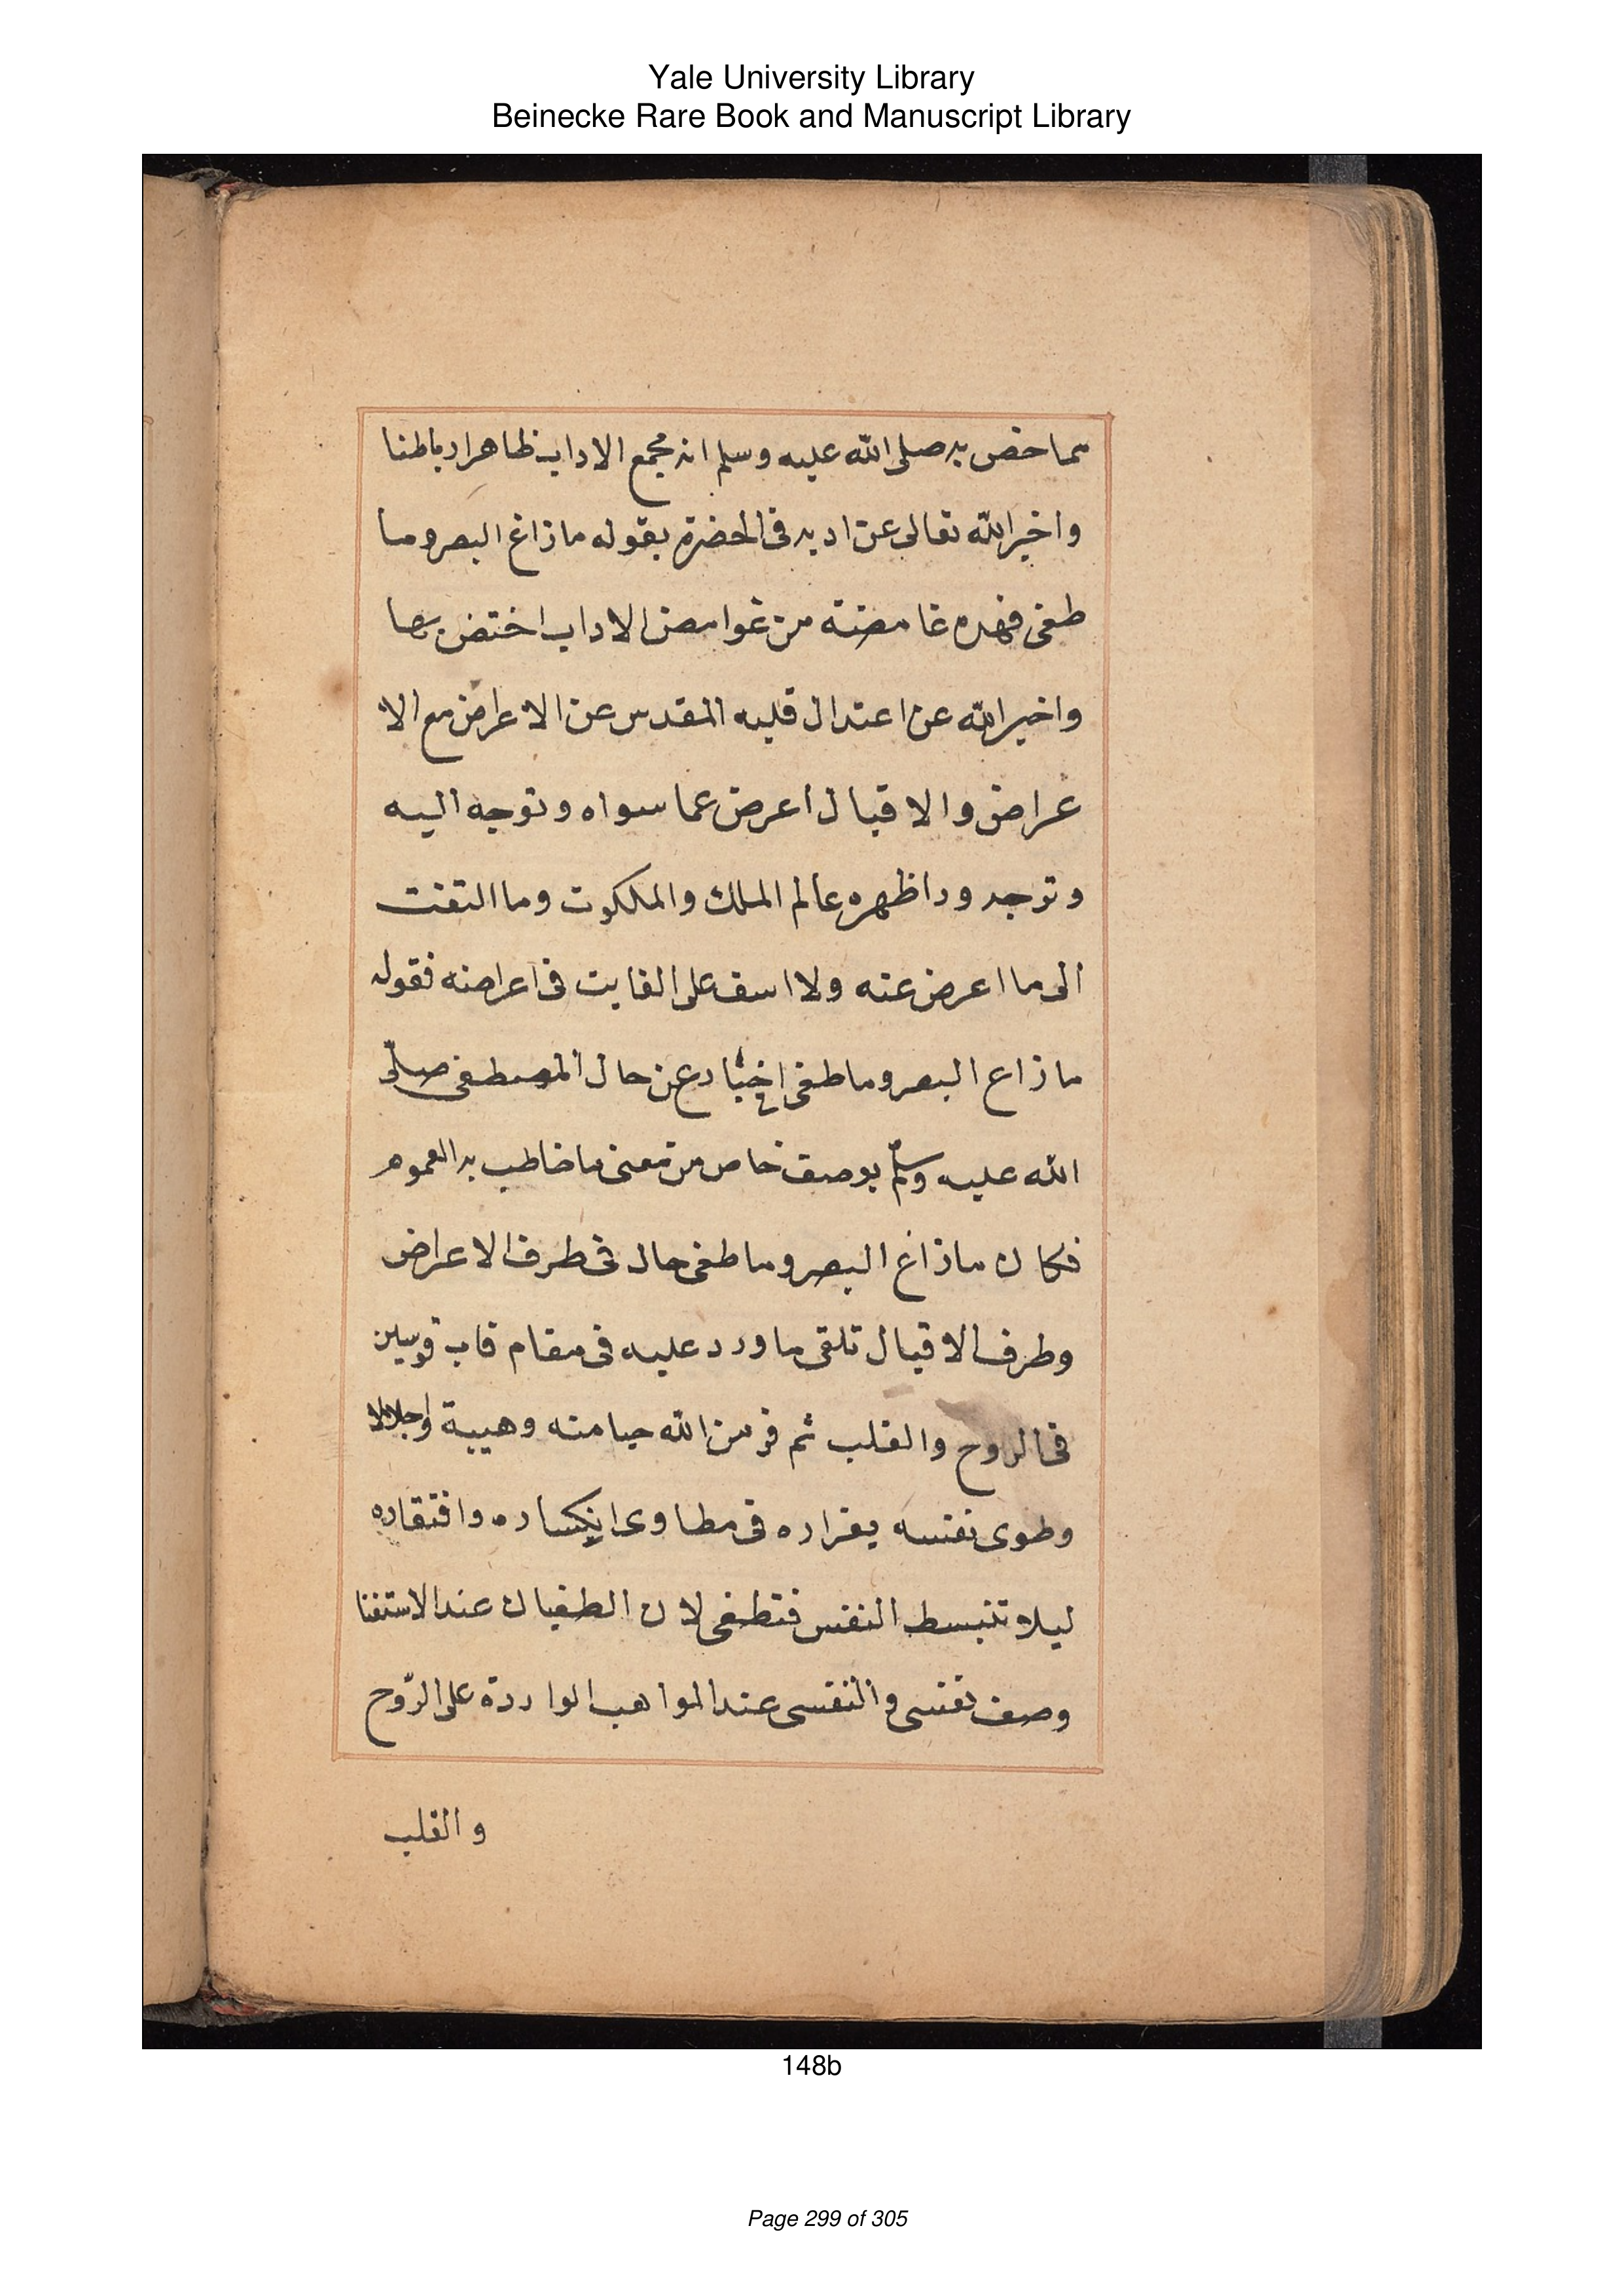 Yale University Library
Beinecke Rare Book and Manuscript Library
مما خص به صلى الله عليه وسلم انه مجمع الاداب ظاهرا وباطنا
واخبر الله تعالى عن ادبه فى الحضرة بقوله ما زاغ البصر وما
طغى فهذه غامضة من غوامض الاداب اختص بها
واخبر الله عن اعتدال قلبه المقدس عن الاعراض مع الا
عراض والاقبال اعرض عما سواه وتوجه اليه
وتوجه ورا ظهره عالم الملك والملكوت وما التفت
الى ما اعرض عنه ولا اسف على الفايت فى اعراضه فقوله
ما زاع البصر وما طغى اخبار عن حال المصطفى صلى
الله عليه وسلم بوصف خاص من معنى ما خاطب به العموم
فكان ما زاغ البصر وما طغى حال فى طرف الاعراض
وطرف الاقبال تلقى ما ورد عليه فى مقام قاب قوسين
فى الروح والقلب ثم فر من الله حيا منه وهيبة واجلالا
وطوى نفسه بفراره فى مطاوى انكساره وافتقاره
ليلا تنبسط النفس فتطغى لان الطغيان عند الاستغنا
وصف نفسى والنفسى عند المواهب الواردة على الرّوح
والقلب
148b
Page 299 of 305